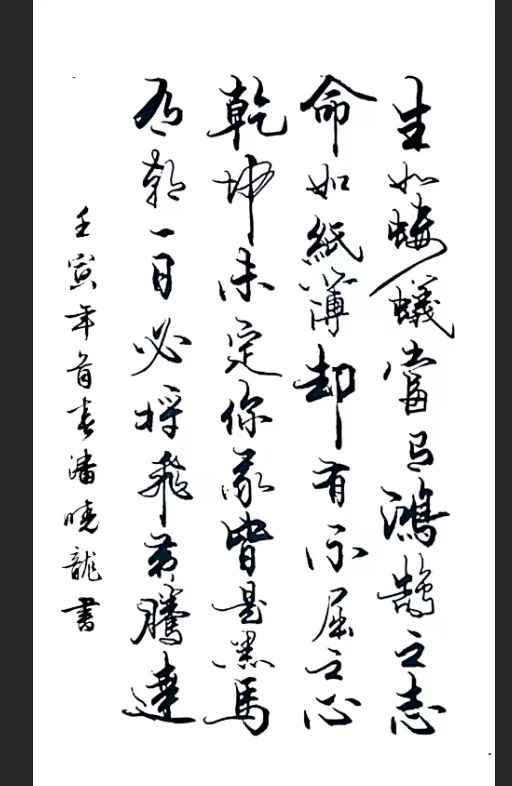 生如蝼蟻當有鴻鹄之志
命如紙薄却有不屈之心
乾坤未定你我皆是黑馬
有朝一日必将飛黄騰達
壬寅年首春潘曉龍書